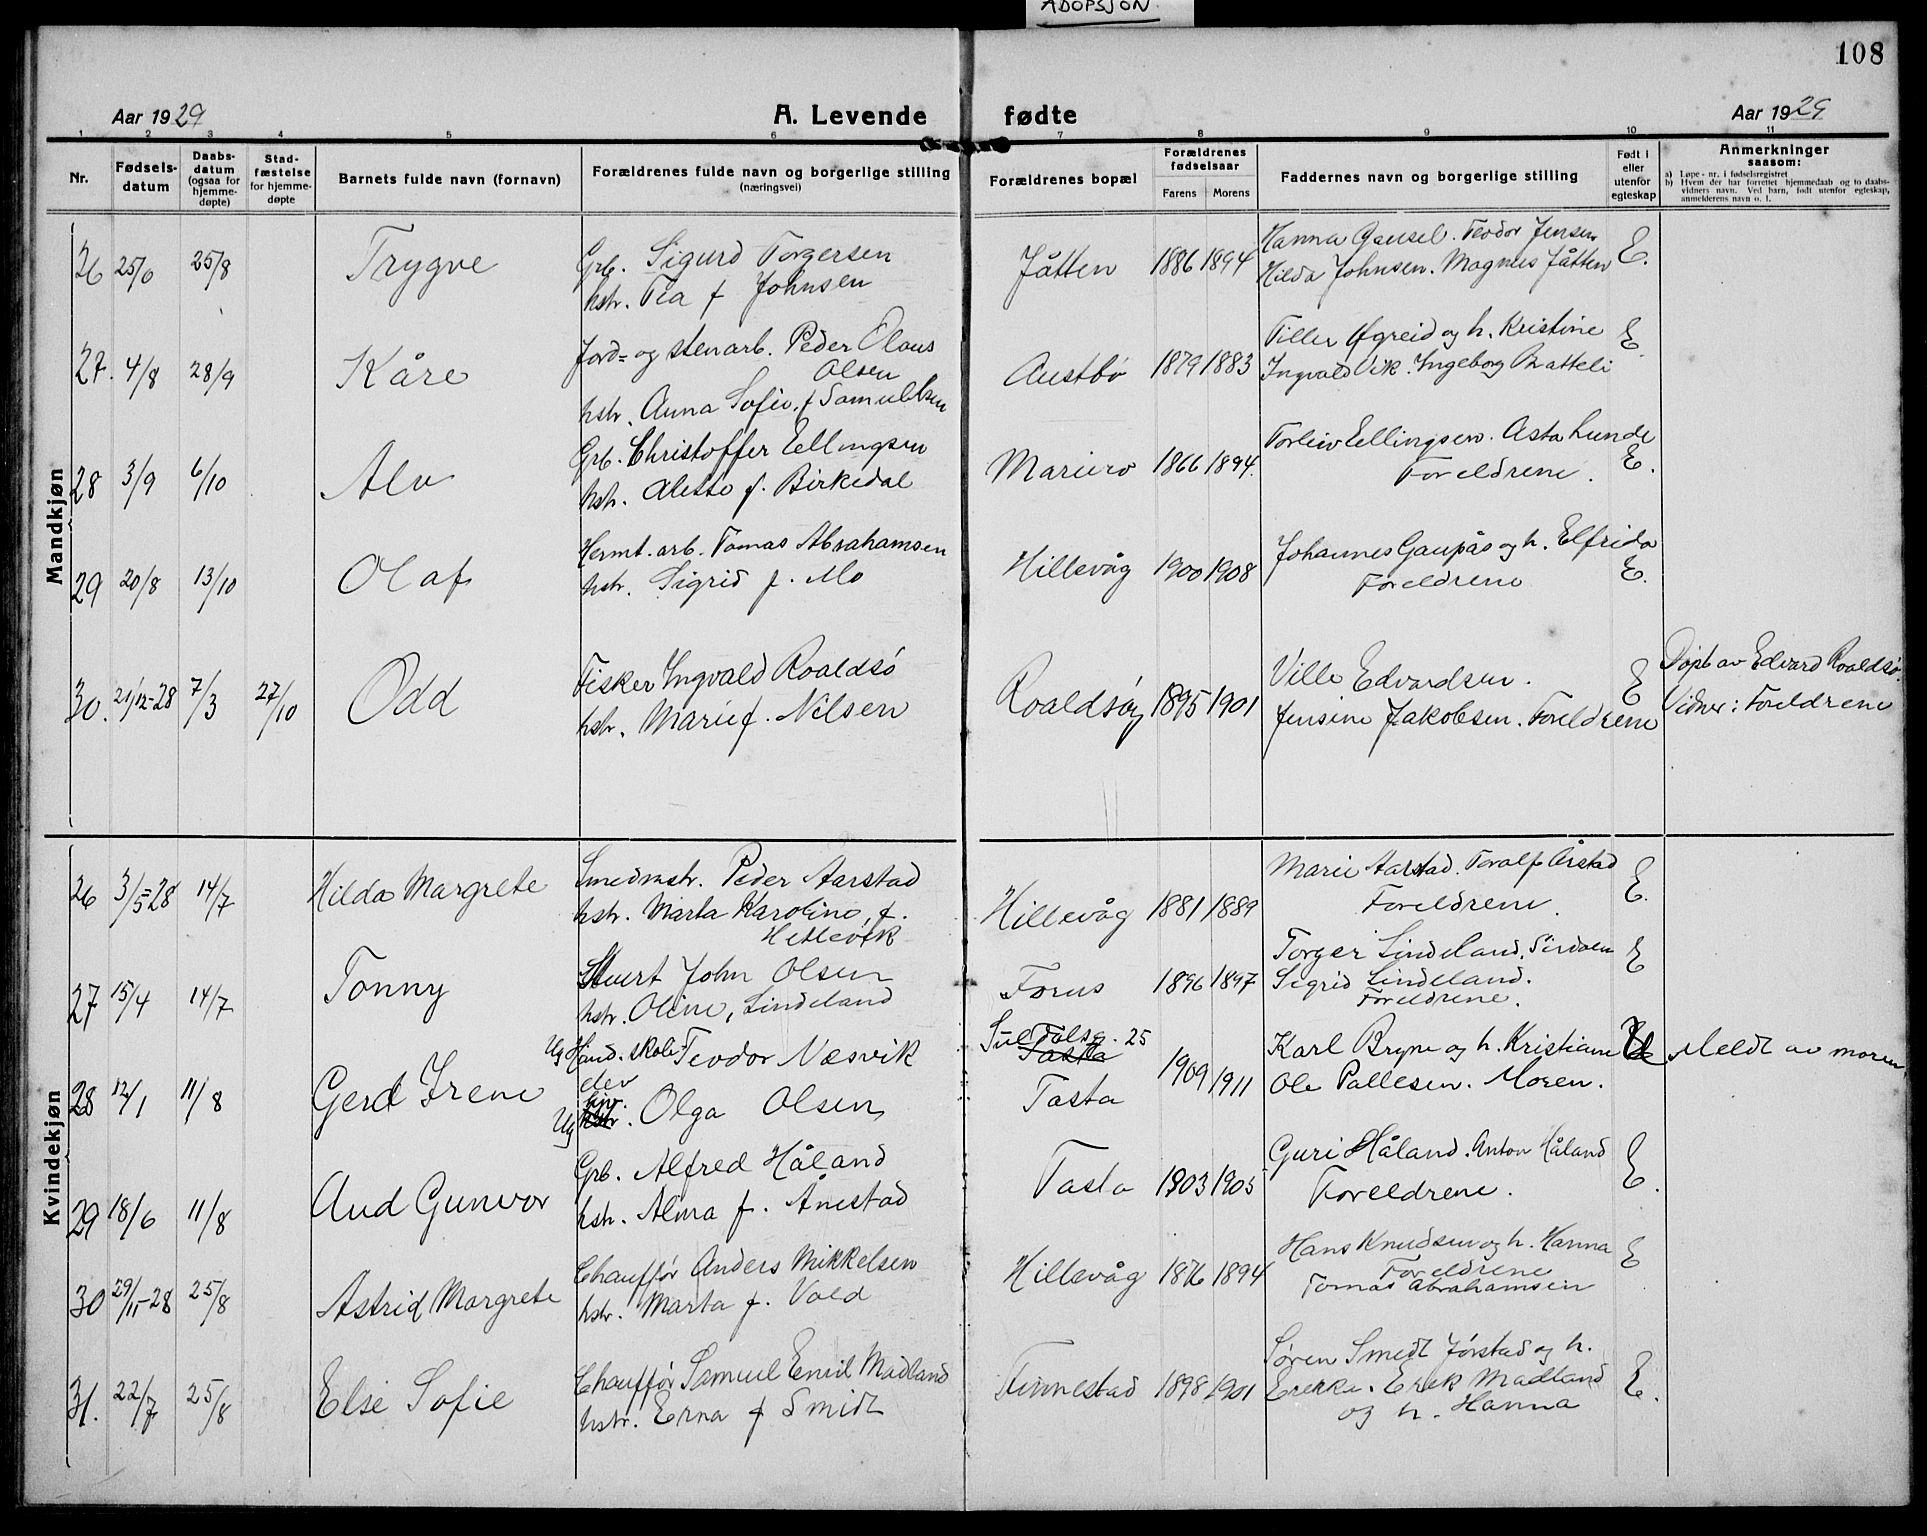 ADOPSJON.
108
Aar 1929
A. Levende fødte
Aar 1929
1 2 3 4 5 6 7 8 9 10 11
Nr.
Fødsels-
datum
Daabs-
datum
(ogsaa for
hjemme-
døpte)
Stad-
fæstelse
for hjemme-
døpte
Barnets fulde navn (fornavn)
Forældrenes fulde navn og borgerlige stilling
(næringsvei)
Forældrenes bopæl
Forældrenes
fødselsaar
Farens Morens
Faddernes navn og borgerlige stilling
Født i
eller
utenfor
egteskap
Anmerkninger
saasom:
a) Løpe-nr. i fødselsregistret
b) Hvem der har forrettet hjemmedaab og to daabs-
vidners navn. Ved barn, født utenfor egteskap,
anmelderens navn o. l.
Mandkjøn
26 25/6 25/8 Trygve
Grb. Sigurd Torgersen
hstr. Tea f Johnsen
Jåtten 1886 1894
Hanna Gausel. Teodor Jensen
Hilda Johnsen. Magnus Jåtten
E.
27. 4/8 28/9 Kåre
Jord= og stenarb. Peder Olaus
Olsen
hstr. Anna Sofie, f Samuelsen
Austbø 1879 1883
Øgreid og h. Kristine
Ingvald Vik. Ingeborg
E.
28 3/9 6/10 Alv
Grb. Christoffer Ellingsen
hstr. f. Birkedal
Mariero 1866 1894.
Torleiv Ellingsen. Asta Lunde
Foreldrene.
E.
29 20/8 13/10 Olaf
Hermt. arb. Tomas Abrahamsen
hstr. Sigrid f. Mo
Hillevåg 1900 1908
Johannes Gaupås og h. Elfrida
Foreldrene
E.
30. 21/12-28 7/3 27/10 Odd
Fisker Ingvald Roaldsø
hstr. Marie f. Nilsen
Roaldsøy 1895 1901
Ville Edvardsen.
Jensine Jakobsen. Foreldrene
E
Døpt av Edvard Roaldsø.
Vidner: Foreldrene
Kvindekjøn
26 3/5-28 14/7 Hilda Margrete
Smedmstr. Peder Aarstad
hstr. Marta Karoline, f.
Hetlevik
Hillevåg 1881 1889
Marie Aarstad. Toralf Årstad
Foreldrene.
E.
27 15/4 14/7 Tonny
Stuert John Olsen
hstr. Oline, Lindeland
Forus 1896 1897
Torger Lindeland, Sirdalen
Sigrid Lindeland.
Foreldrene.
E
28 12/1 11/8 Gerd Irene
Ug Hand. skole- Teodor Næsvik
elev
Ug hstr. Olga Olsen
25
Tasta
Tasta
1909 1911
Karl Bryne og h. Kristiane
Ole Pallesen. Moren.
U
Meldt av moren
29 18/6 11/8 Aud Gunvor
Grb. Alfred Håland
hstr. Alma f. Ånestad
Tasta 1903 1905
Guri Håland. Anton Håland
Foreldrene.
E.
30 29/11-28 25/8 Astrid Margrete
Chauffør Anders Mikkelsen
hstr. Marta f. Vold
Hillevåg 1876 1894
Hans Knudsen og h. Hanna
Foreldrene
Tomas Abrahamsen
E
31. 22/7 25/8 Else Sofie
Chauffør Samuel Emil Madland
hstr. Erna f Smidt
Finnestad 1898 1901
Søren Smedt Jørstad og h.
Erikka. Erik Madland
og h. Hanna
E.